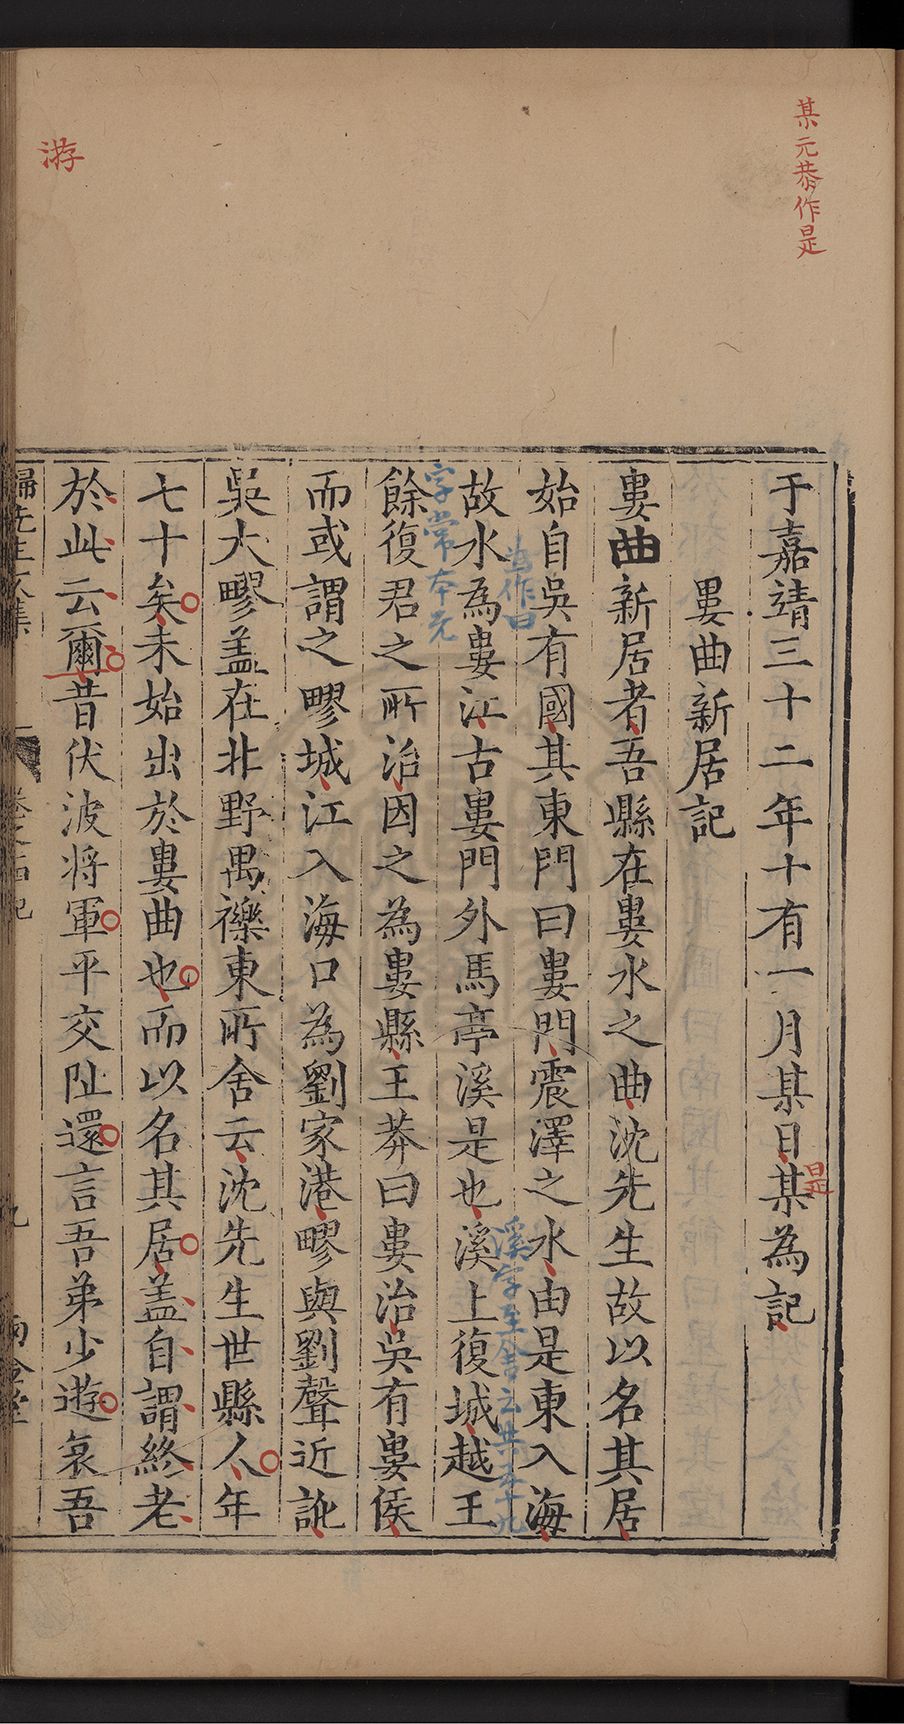 某元恭作是
于嘉靖三十二年十有一月某日某為記
是
婁曲新居記
婁曲新居者吾縣在婁水之曲沈先生故以名其居
始自吳有國其東門曰婁門震澤之水由是東入海
當作曰
故水為婁江古婁門外馬亭溪是也溪上復城越王
溪字至舍云共五十九
字常本无
餘復君之所治因之為婁縣王莽曰婁治吳有婁侯
而或謂之䣍城江入海口為劉家港䣍與劉聲近訛
吳大䣍盖在北野禺櫟東所舍云沈先生世縣人年
七十矣未始出於婁曲也而以名其居盖自謂終老
於此云爾昔伏波將軍平交阯還言吾弟少遊哀吾
游
歸先生文集
卷之四 記
九